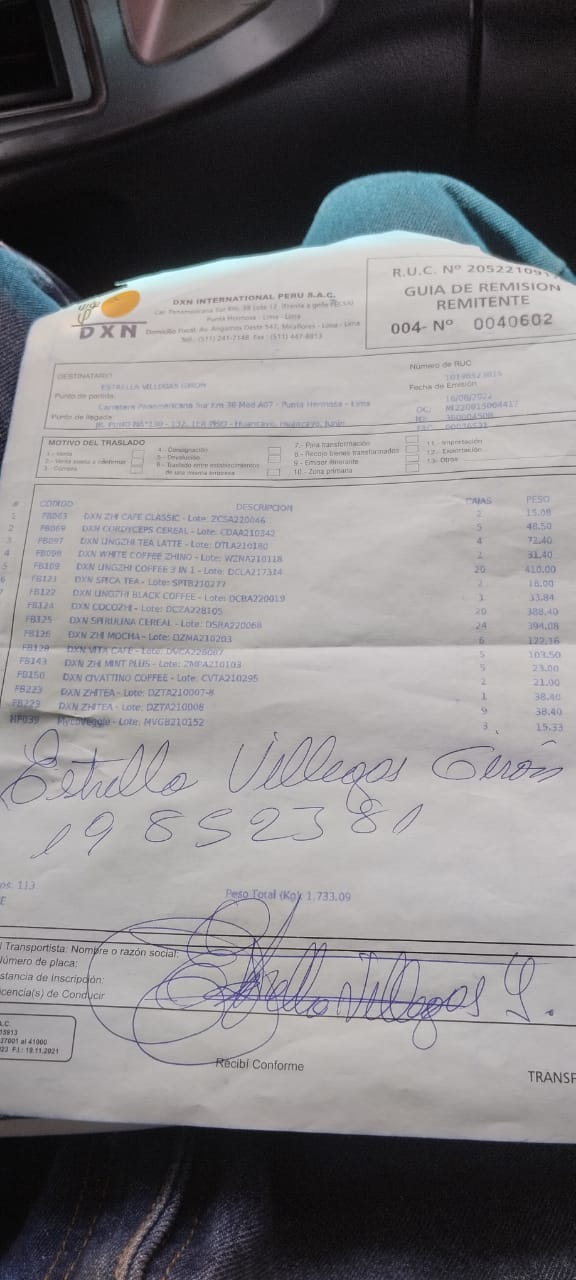 R.U.C. Nº 205221091
GUIA DE REMISION
REMITENTE
004- Nº 0040602
DXN
DXN INTERNATIONAL PERU S.A.C.
Car. Panamericana Sur Km. 38 Lote 12 (Frente a grifo
Punta Hermosa - Lima - Lima
Domicilio Fiscal: Av. Angamos Oeste 547, Miraflores - Lima - Lima
Tel.: (511) 241-7148 Fax: (511) 447-8813
DESTINATARIO:
ESTRELLA VILLEGAS GIRON
Punto de partida:
Carretera Panamericana Sur Km 38 Mod A07 - Punta Hermosa - Lima
Punto de llegada:
JR. PUNO NRO 130 - 132, 1ER PISO - Huancayo, Huancayo, Junin
Número de RUC
Fecha de Emisión
16/08/2022
OC: M1220815004417
MOTIVO DEL TRASLADO
1.- Venta
2.- Venta sujeta a confirmar
3.- Compra
4.- Consignación
5.- Devolución
6.- Traslado entre establecimientos
de una misma empresa
7.- Para transformación
8.- Recojo bienes transformados
9.- Emisor itinerante
10.- Zona primaria
11.- Importación
12.- Exportación
13.- Otros
# CODIGO DESCRIPCION CAJAS PESO
1 FB063 DXN ZHI CAFE CLASSIC - Lote: ZCSA220046 2 15.08
2 FB069 DXN CORDYCEPS CEREAL - Lote: CDAA210342 5 48.50
3 FB097 DXN LINGZHI TEA LATTE - Lote: DTLA210180 4 72.40
4 FB098 DXN WHITE COFFEE ZHINO - Lote: WZNA210118 2 31.40
5 FB109 DXN LINGZHI COFFEE 3 IN 1 - Lote: DCLA217314 20 410.00
6 FB121 DXN SPICA TEA - Lote: SPTB210277 2 18.00
7 FB122 DXN LINGZHI BLACK COFFEE - Lote: DCBA220019 3 33.84
FB124 DXN COCOZHI - Lote: DCZA228105 20 388.40
FB125 DXN SPIRULINA CEREAL - Lote: DSRA220068 24 394.08
FB126 DXN ZHI MOCHA - Lote: DZMA210203 6 122.16
FB128 DXN VITA CAFE - Lote: DVCA226087 5 103.50
FB143 DXN ZHI MINT PLUS - Lote: ZMPA210103 5 23.00
FB150 DXN CIVATTINO COFFEE - Lote: CVTA210295 2 21.00
FB223 DXN ZHITEA - Lote: DZTA210007-8 1 38.40
FB223 DXN ZHITEA - Lote: DZTA210008 9 38.40
HF039 MycoVeggie - Lote: MVGB210152 3 15.33
Estrella Villegas Girón
19852381
os. 113
E
Peso Total (Kg): 1,733.09
l Transportista: Nombre o razón social:
Número de placa:
stancia de Inscripción:
icencia(s) de Conducir
Estrella Villegas G.
A.C.
15913
37001 al 41000
23 F.I.: 19.11.2021
Recibí Conforme
TRANSP